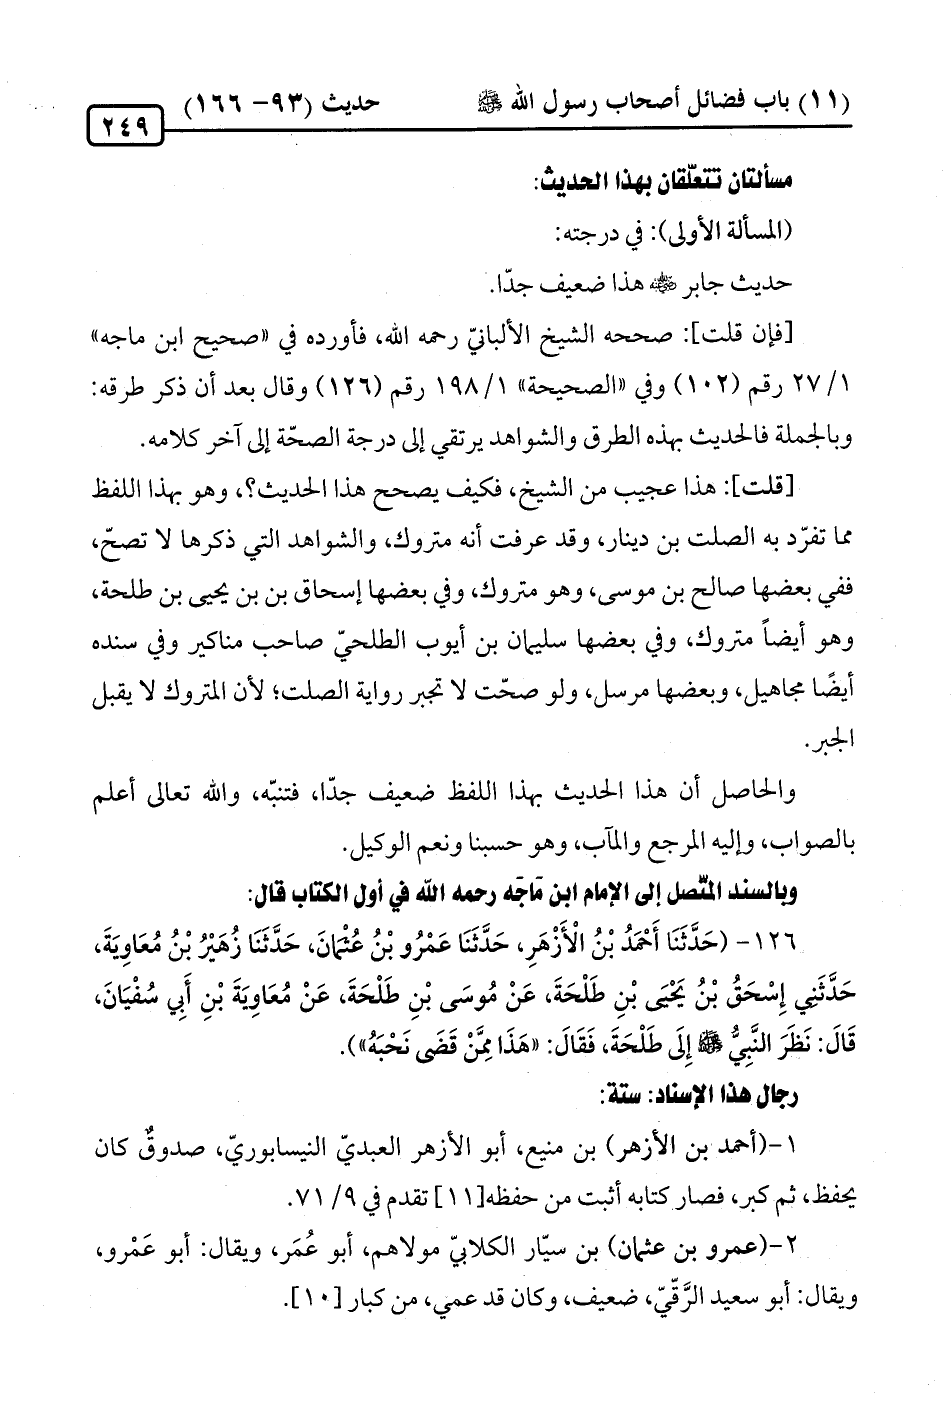 (١١) باب فضائل أصحاب رسول الله ﷺ حديث (٩٣- ١٦٦)
٢٤٩
مسألتان تتعلّقان بهذا الحديث:
(المسألة الأولى): في درجته:
حديث جابر رضي الله عنه هذا ضعيف جدّا.
[فإن قلت]: صححه الشيخ الألبانيّ رحمه الله، فأورده في «صحيح ابن ماجه»
١/ ٢٧ رقم (١٠٢) وفي «الصحيحة» ١/ ١٩٨ رقم (١٢٦) وقال بعد أن ذكر طرقه:
وبالجملة فالحديث بهذه الطرق والشواهد يرتقي إلى درجة الصحّة إلى آخر كلامه.
[قلت]: هذا عجيب من الشيخ، فكيف يصحح هذا الحديث؟، وهو بهذا اللفظ
مما تفرّد به الصلت بن دينار، وقد عرفت أنه متروك، والشواهد التي ذكرها لا تصحّ،
ففي بعضها صالح بن موسى، وهو متروك، وفي بعضها إسحاق بن بن يحيى بن طلحة،
وهو أيضاً متروك، وفي بعضها سليمان بن أيوب الطلحيّ صاحب مناكير وفي سنده
أيضًا مجاهيل، وبعضها مرسل، ولو صحّت لا تجبر رواية الصلت؛ لأن المتروك لا يقبل
الجبر.
والحاصل أن هذا الحديث بهذا اللفظ ضعيف جدّا، فتنبّه، والله تعالى أعلم
بالصواب، وإليه المرجع والمآب، وهو حسبنا ونعم الوكيل.
وبالسند المتّصل إلى الإمام ابن مَاجَه رحمه الله في أول الكتاب قال:
١٢٦- (حَدَّثَنَا أَحْمَدُ بْنُ الْأَزْهَرِ، حَدَّثَنَا عَمْرُو بْنُ عُثْمَانَ، حَدَّثَنَا زُهَيْرُ بْنُ مُعَاوِيَةَ،
حَدَّثَنِي إِسْحَقُ بْنُ يَحْيَى بْنِ طَلْحَةَ، عَنْ مُوسَى بْنِ طَلْحَةَ، عَنْ مُعَاوِيَةَ بْنِ أَبِي سُفْيَانَ،
قَالَ: نَظَرَ النَّبِيُّ ﷺ إِلَى طَلْحَةَ، فَقَالَ: «هَذَا مِمَّنْ قَضَى نَحْبَهُ»).
رجال هذا الإسناد: ستة:
١-(أحمد بن الأزهر) بن منيع، أبو الأزهر العبديّ النيسابوريّ، صدوقٌ كان
يحفظ، ثم كبر، فصار كتابه أثبت من حفظه[١١] تقدم في ٩/ ٧١.
٢-(عمرو بن عثمان) بن سيّار الكلابيّ مولاهم، أبو عُمَر، ويقال: أبو عَمْرو،
ويقال: أبو سعيد الرَّقّيّ، ضعيف، وكان قد عمي، من كبار [١٠].